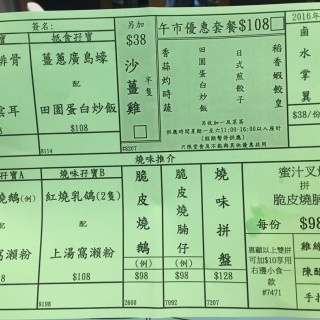 簽名:
抵食孖寶
薑蔥廣島蠔
配
田園蛋白炒飯
$108
#114
另加
$38
沙薑雞
半隻
#8267
午市優惠套餐$108
香蒜灼時蔬
田園蛋白炒飯
日式煎餃子
稻香蝦餃皇
另收加一及茗茶
供應時間星期一至六11:00-16:00以入座計
(假期暫停供應)
只限堂食及不能與其他優惠共用
2016年
鹵水掌翼
$38/份
排骨
燒味推介
孖寶A
燒鵝(例)
窩瀨粉
燒味孖寶B
紅燒乳鴿(2隻)
配
上湯窩瀨粉
$108
9198
脆皮燒鵝
(例)
$98
2660
脆皮燒腩仔
(例)
$98
7092
燒味拼盤
$128
7207
惠顧以上雙拼
可加$10享用
右邊小食一款
#7471
蜜汁叉燒
拼
脆皮燒腩
每份
$98